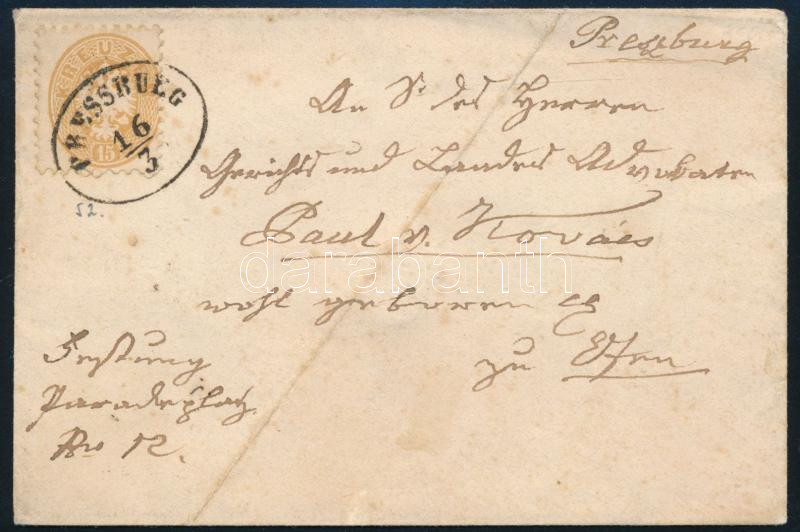 Pressburg
KREUZ
15
PRESSBURG
16
3
52.
An Sr des Herren
Gerichts und Landes Advokaten
Paul v. Kovács
wohl geboren
zu Ofen
Festung
Paradeplatz
No 12.
darabanth